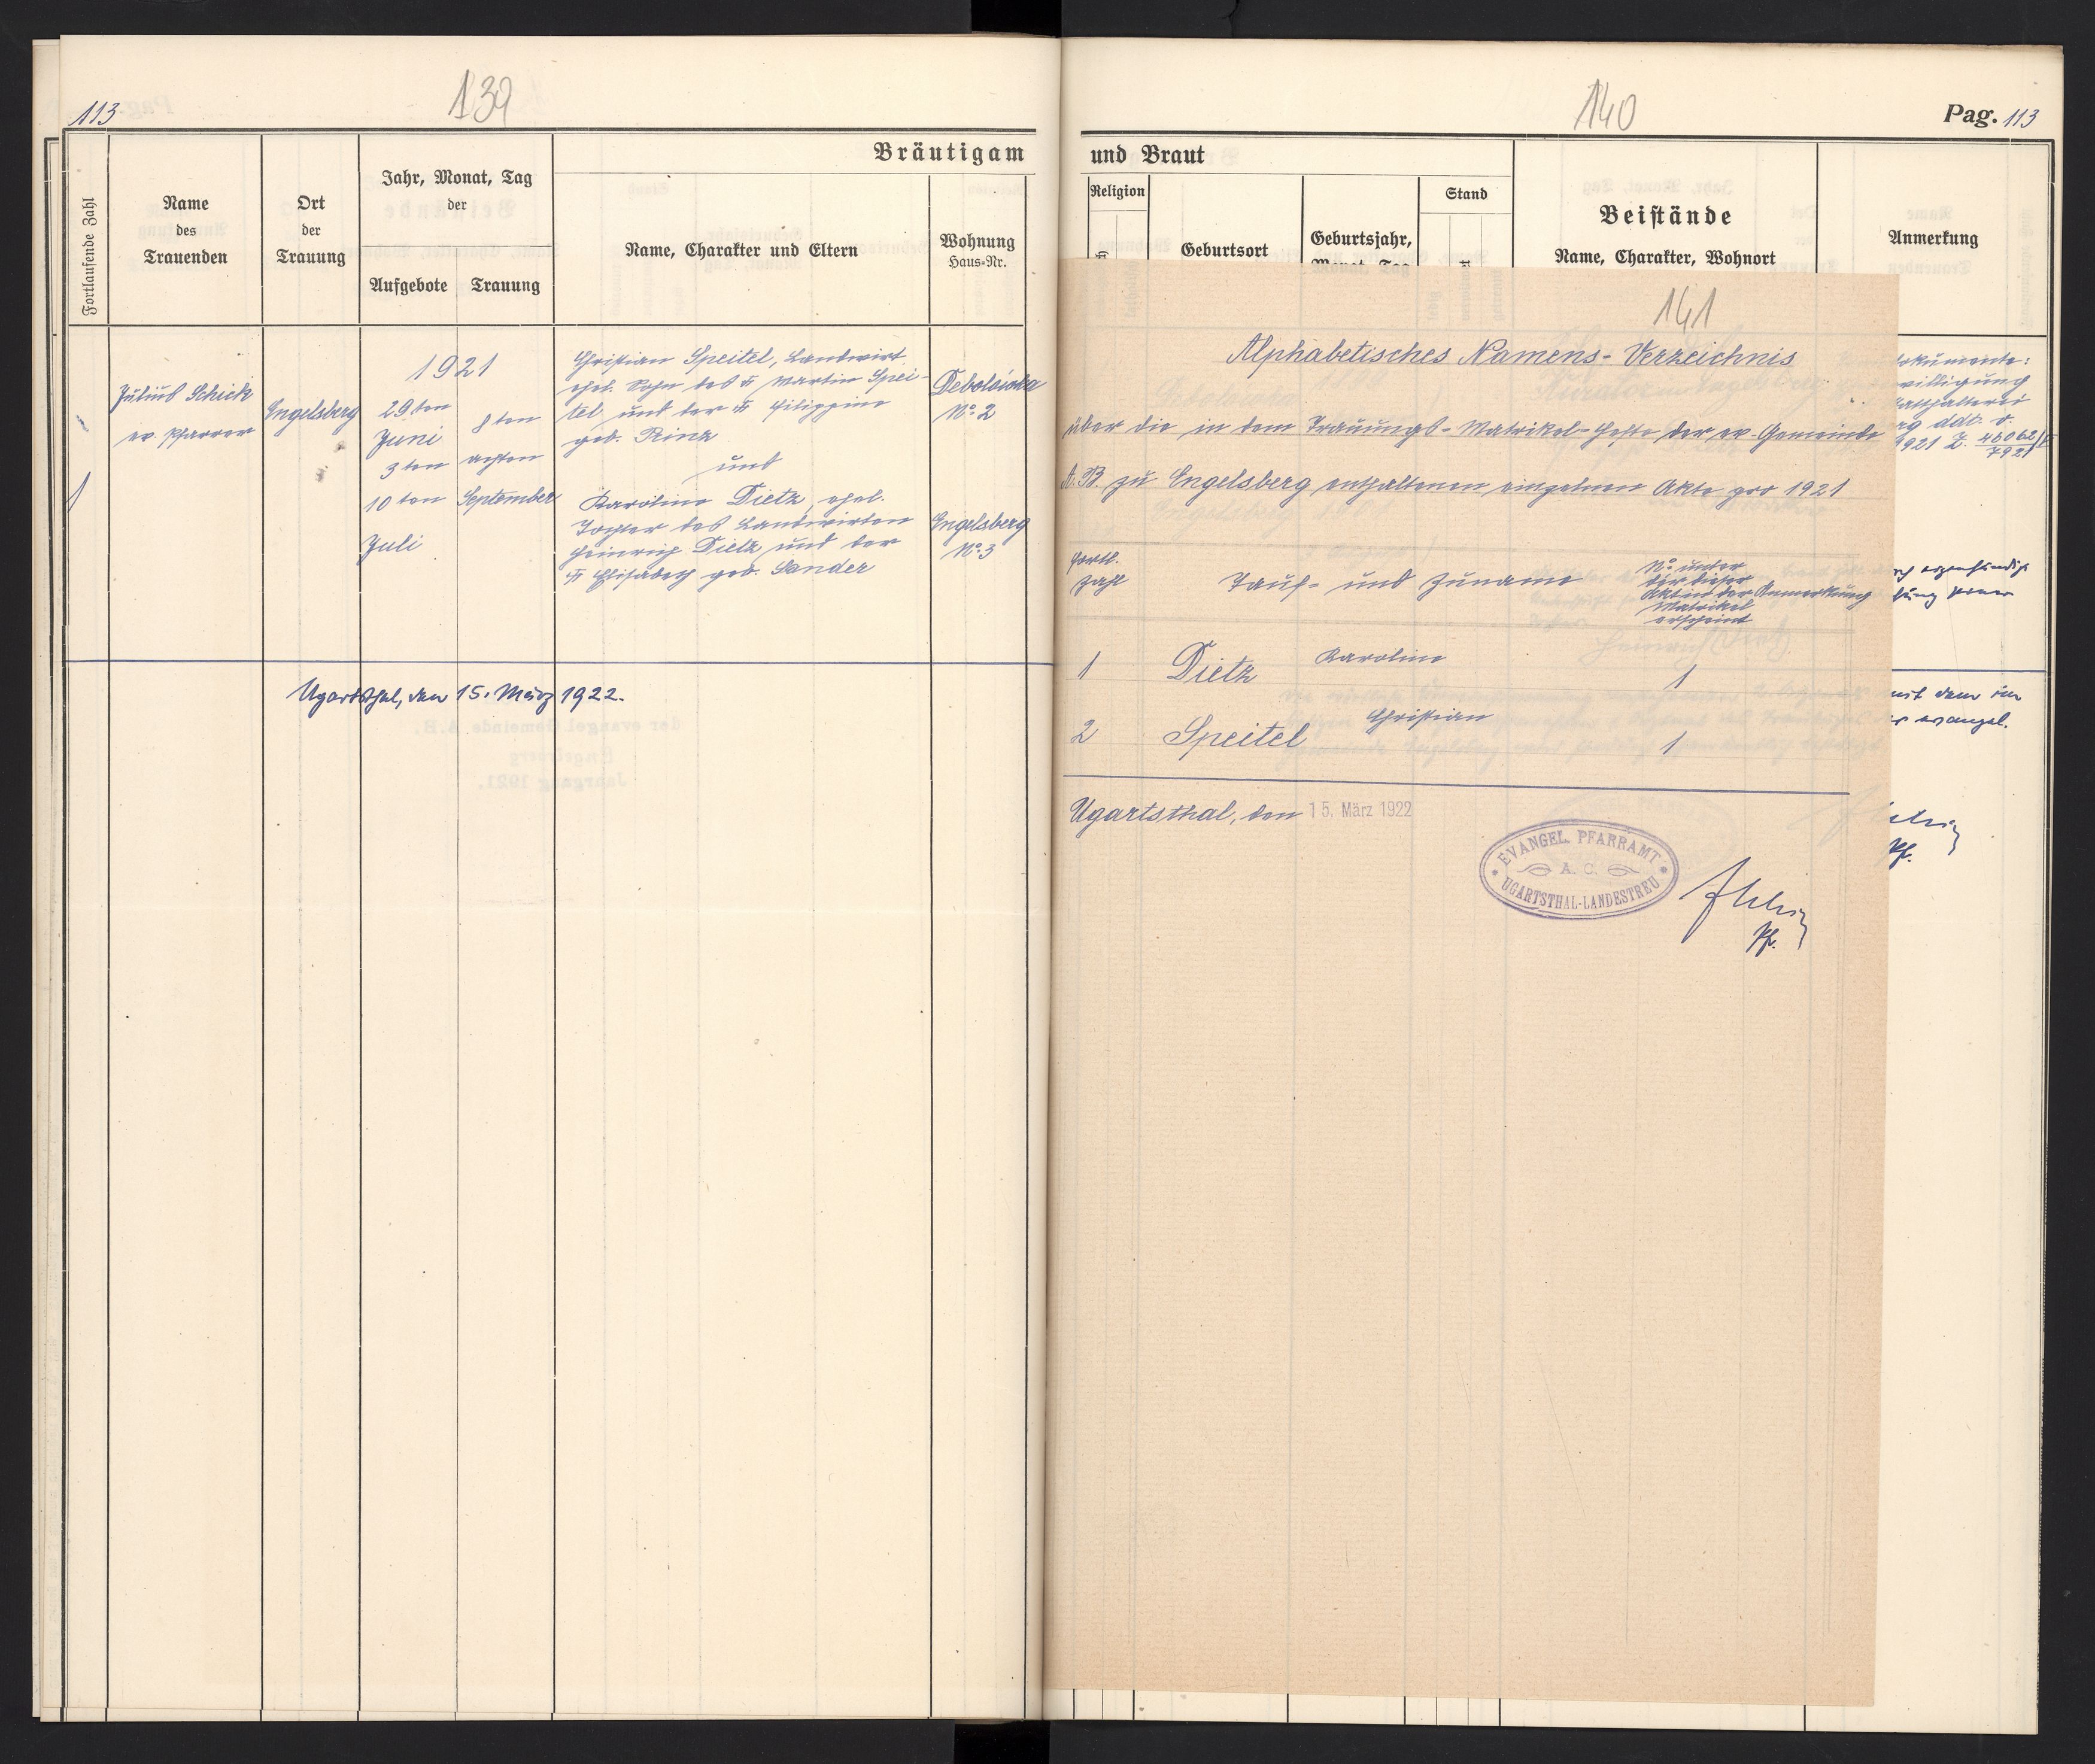 113
139
Bräutigam
Fortlaufende Zahl
Name
des
Trauenden
Ort
der
Trauung
Jahr, Monat, Tag
der
Aufgebote
Trauung
Name, Charakter und Eltern
Wohnung
Haus-Nr.
1
Julius Schick
ev. Pfarrer
Engelsberg
1921
29ten
Juni
3ten
10ten
Juli
8ten
achten
September
Christian Speitel, Landwirt
ehel. Sohn des Martin Spei-
tel und der Filippine
geb. Rinz
und
Karoline Dietz, ehel.
Tochter des Landwirten
Heinrich Dietz und der
Elisabeth geb. Sander
Debolówka
No. 2
Engelsberg
No. 3
Ugartsthal, den 15. März 1922.
140
Pag. 113
und Braut
Religion
Geburtsort
Geburtsjahr,
Monat, Tag
Stand
Beistände
Name, Charakter, Wohnort
Anmerkung
okumente:
willigung
atthalterei
ddt.
1921 Z.
mit dem im
evangel.
Pf.
141
Alphabetisches Namens-Verzeichnis
über die in dem Trauungs-Matrikel-Hefte der ev. Gemeinde
A. B. zu Engelsberg enthaltenen einzelnen Akte pro 1921
Fortl.
Zahl
Tauf- und Zuname
No. unter
der dieser
Akt in der
Matrikel
erscheint
Anmerkung
1 Dietz Karoline 1
2 Speitel Christian 1
Ugartsthal, den 15. März 1922
EVANGEL. PFARRAMT
A. C.
UGARTSTHAL-LANDESTREU
Pf.